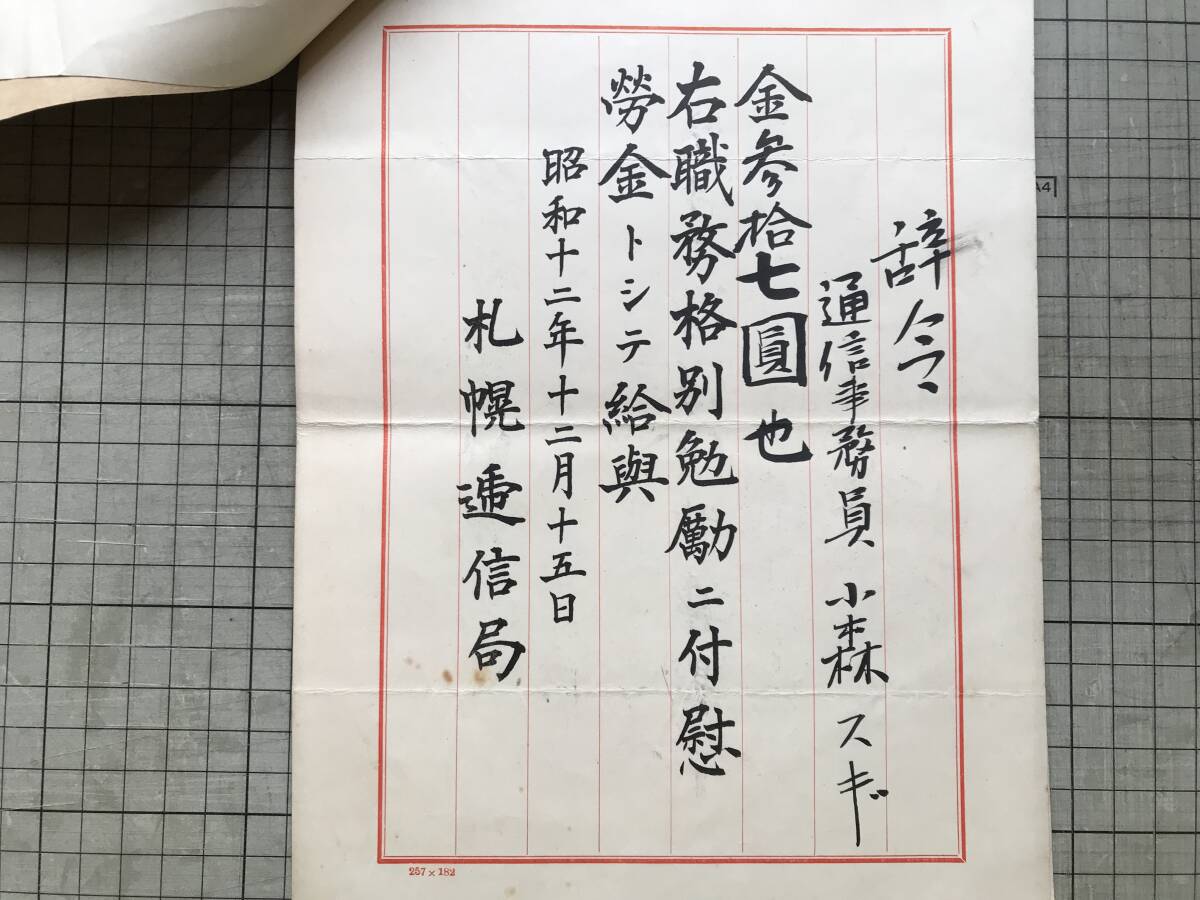 辞令
通信事務員 小森スギ
金参拾七圓也
右職務格別勉励ニ付慰
勞金トシテ給與
昭和十二年十二月十五日
札幌逓信局
257×182
A4